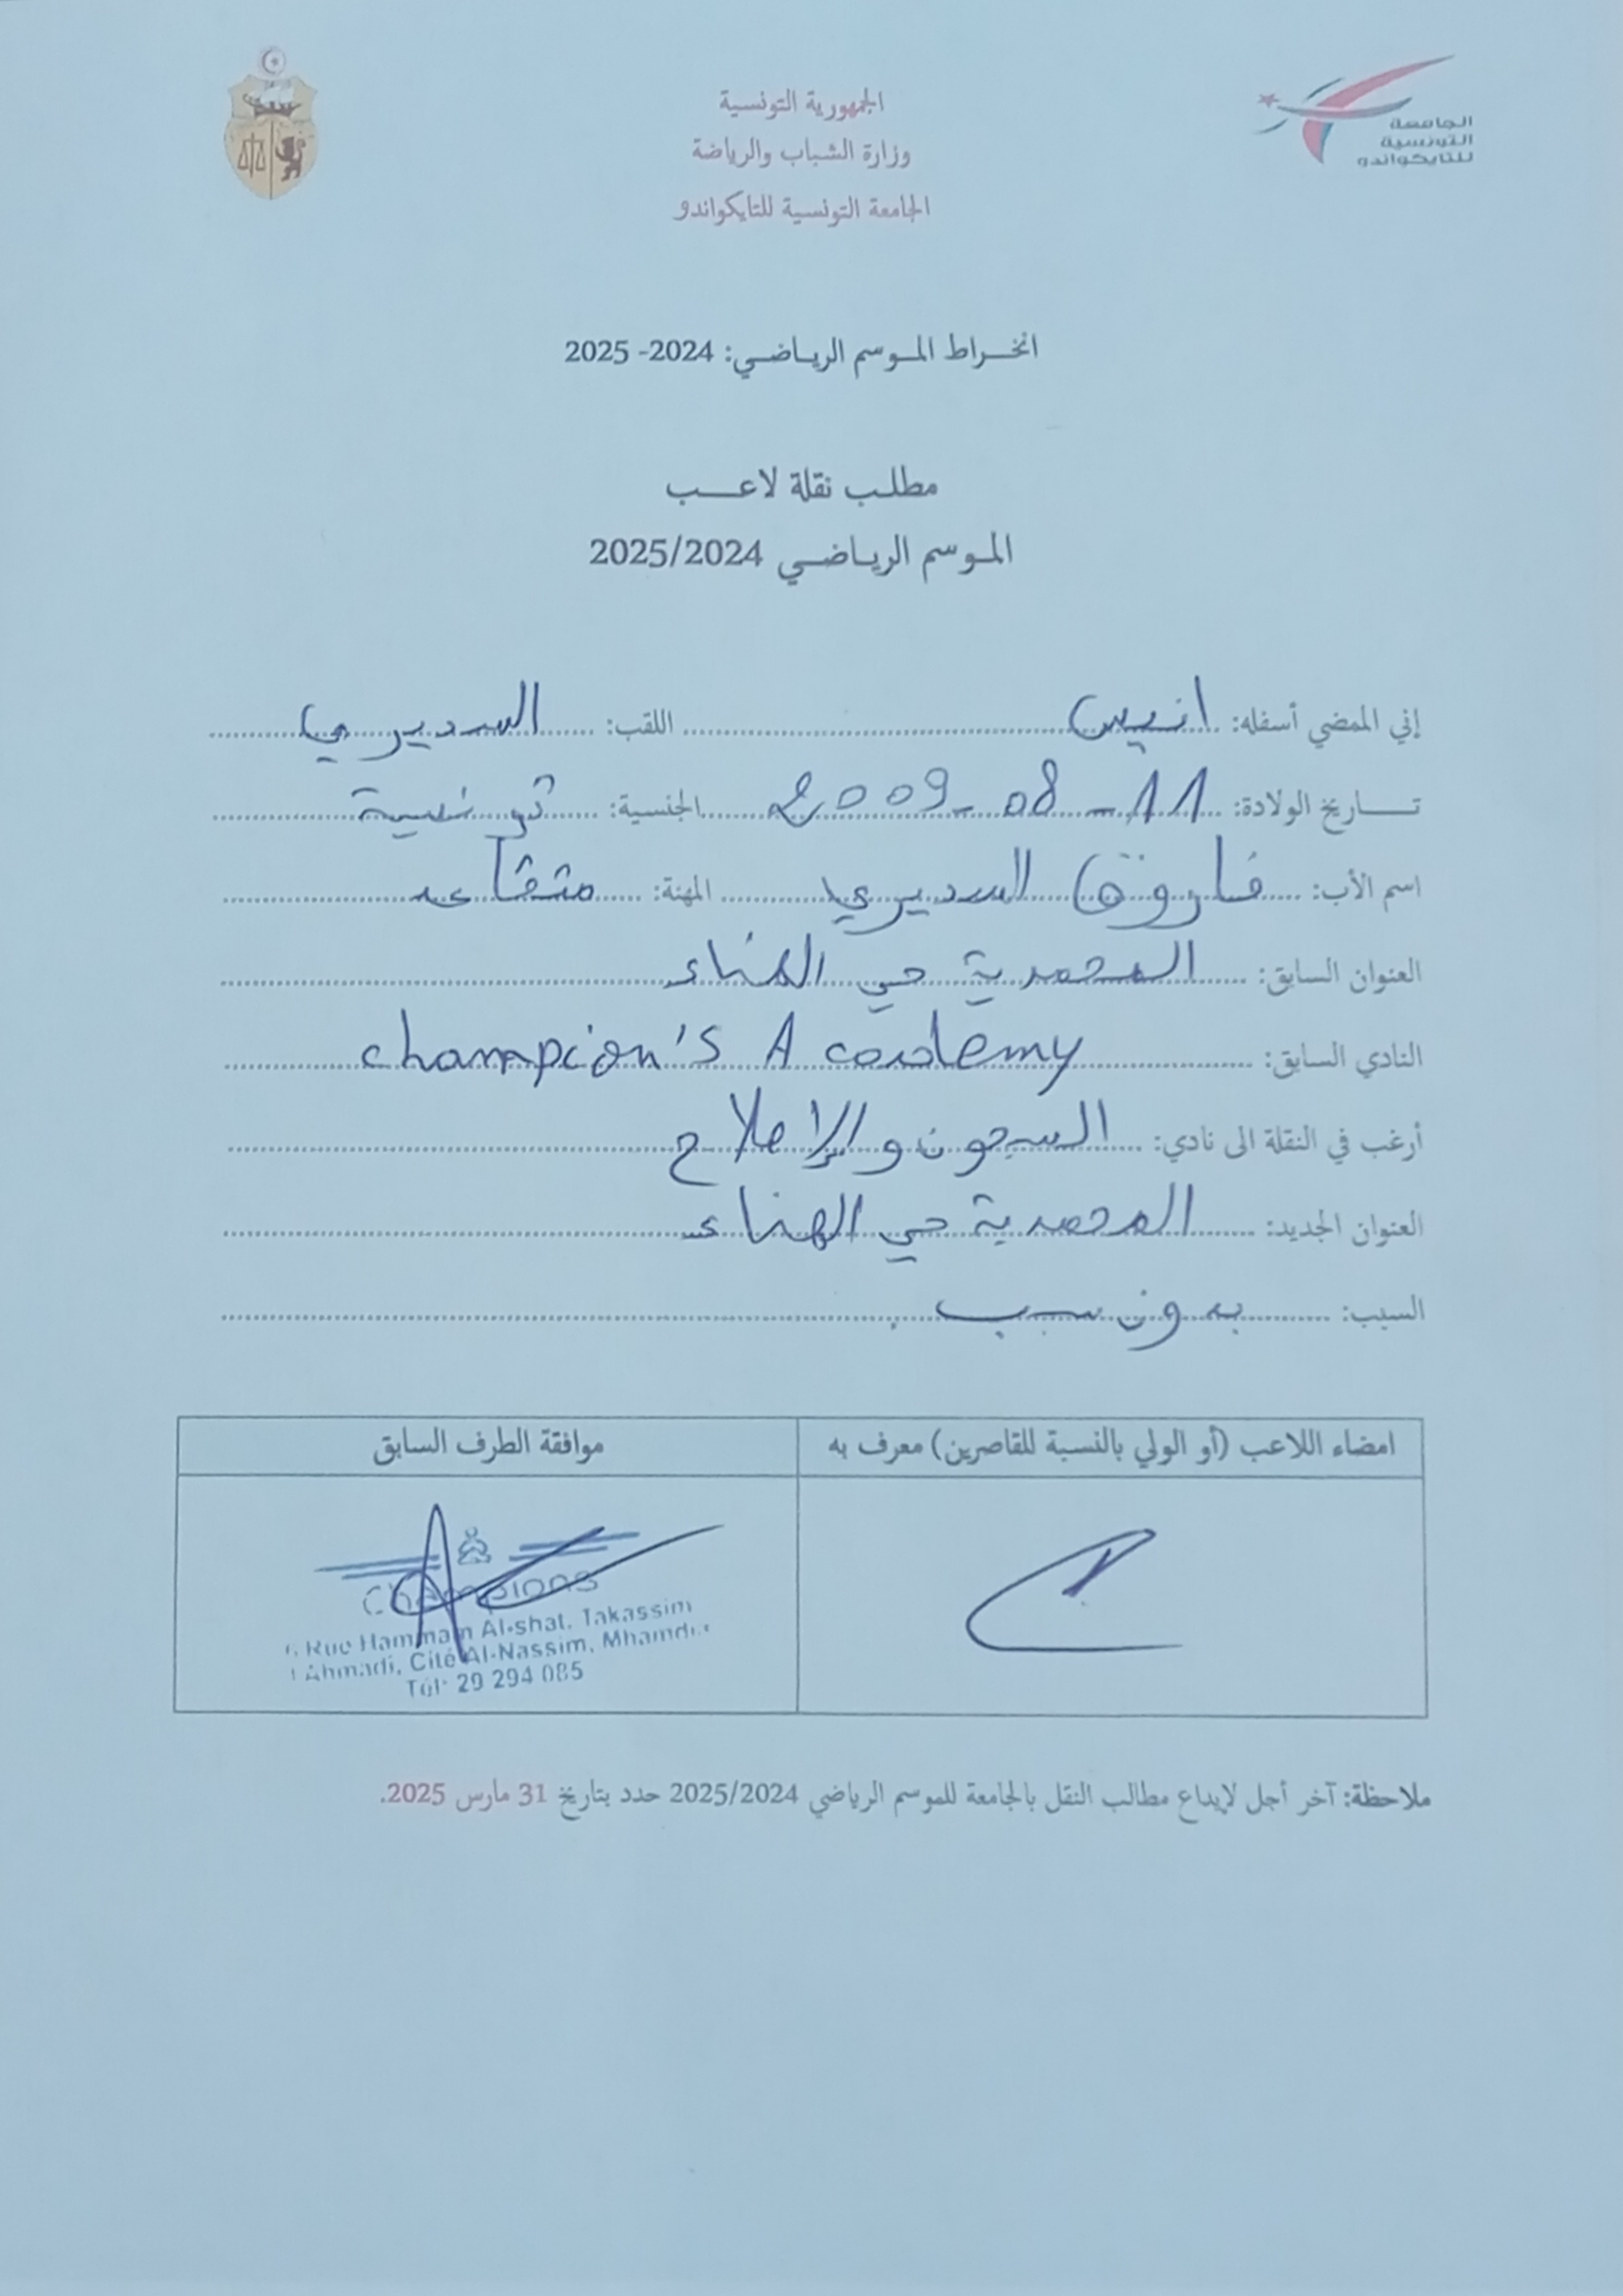 الجامعة
التونسية
للتايكواندو
الجمهورية التونسية
وزارة الشباب والرياضة
الجامعة التونسية للتايكواندو
انخراط الموسم الرياضي: 2024- 2025
مطلب نقلة لاعب
الموسم الرياضي 2025/2024
إني الممضي أسفله: انيس اللقب: السديري
تاريخ الولادة: 11 - 08 - 2009 الجنسية: تونسية
اسم الأب: فاروق السديري المهنة: متقاعد
العنوان السابق: المحمدية حي الهناء
النادي السابق: champion's Academy
أرغب في النقلة الى نادي: السجون والإصلاح
العنوان الجديد: المحمدية حي الهناء
السبب: بدون سبب .
امضاء اللاعب (أو الولي بالنسبة للقاصرين) معرف به
موافقة الطرف السابق
Champions
Rue Hammam Al-shat, Takassim
Ahmadi, Cité Al-Nassim, Mhamdi
Tél: 29 294 085
ملاحظة: آخر أجل لإيداع مطالب النقل بالجامعة للموسم الرياضي 2025/2024 حدد بتاريخ 31 مارس 2025.